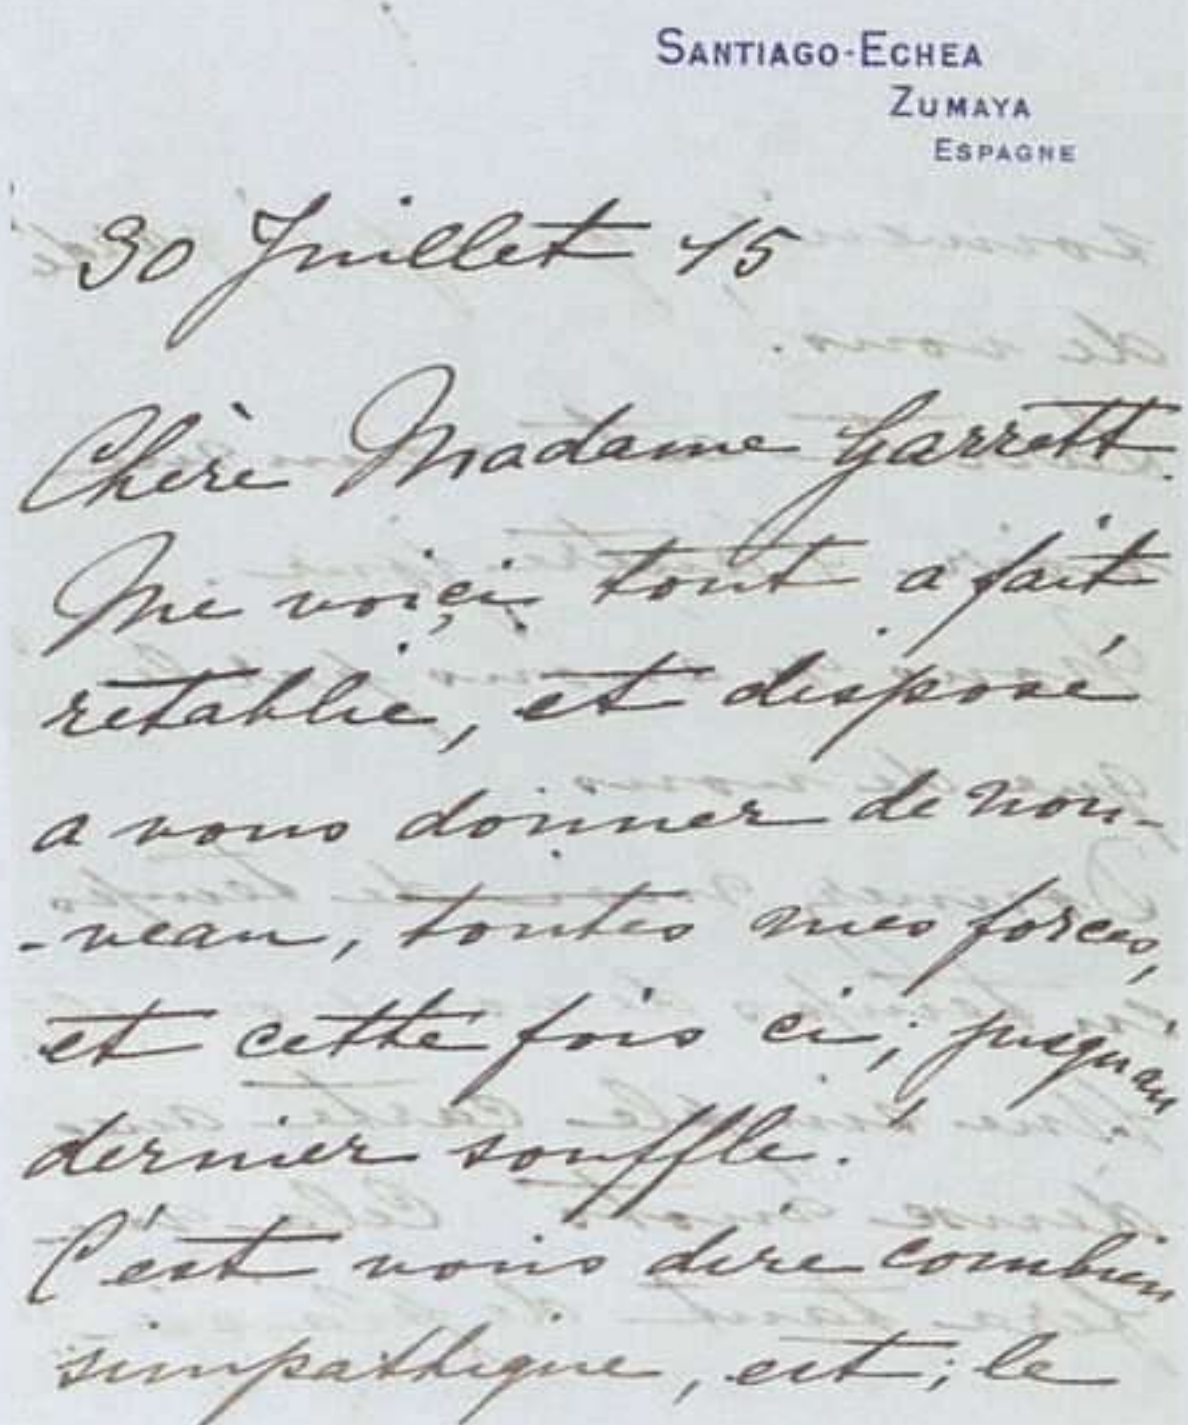 SANTIAGO-ECHEA
ZUMAYA
ESPAGNE
30 Juillet 15
Chère Madame Garrett.
Me voiçi tout a fait
retablie, et disposé
a vous donner de nou-
-veau, toutes mes forces,
et cette fois ci; jusqu'au
dernier souffle.
C'est vous dire combien
simpathique, est; le